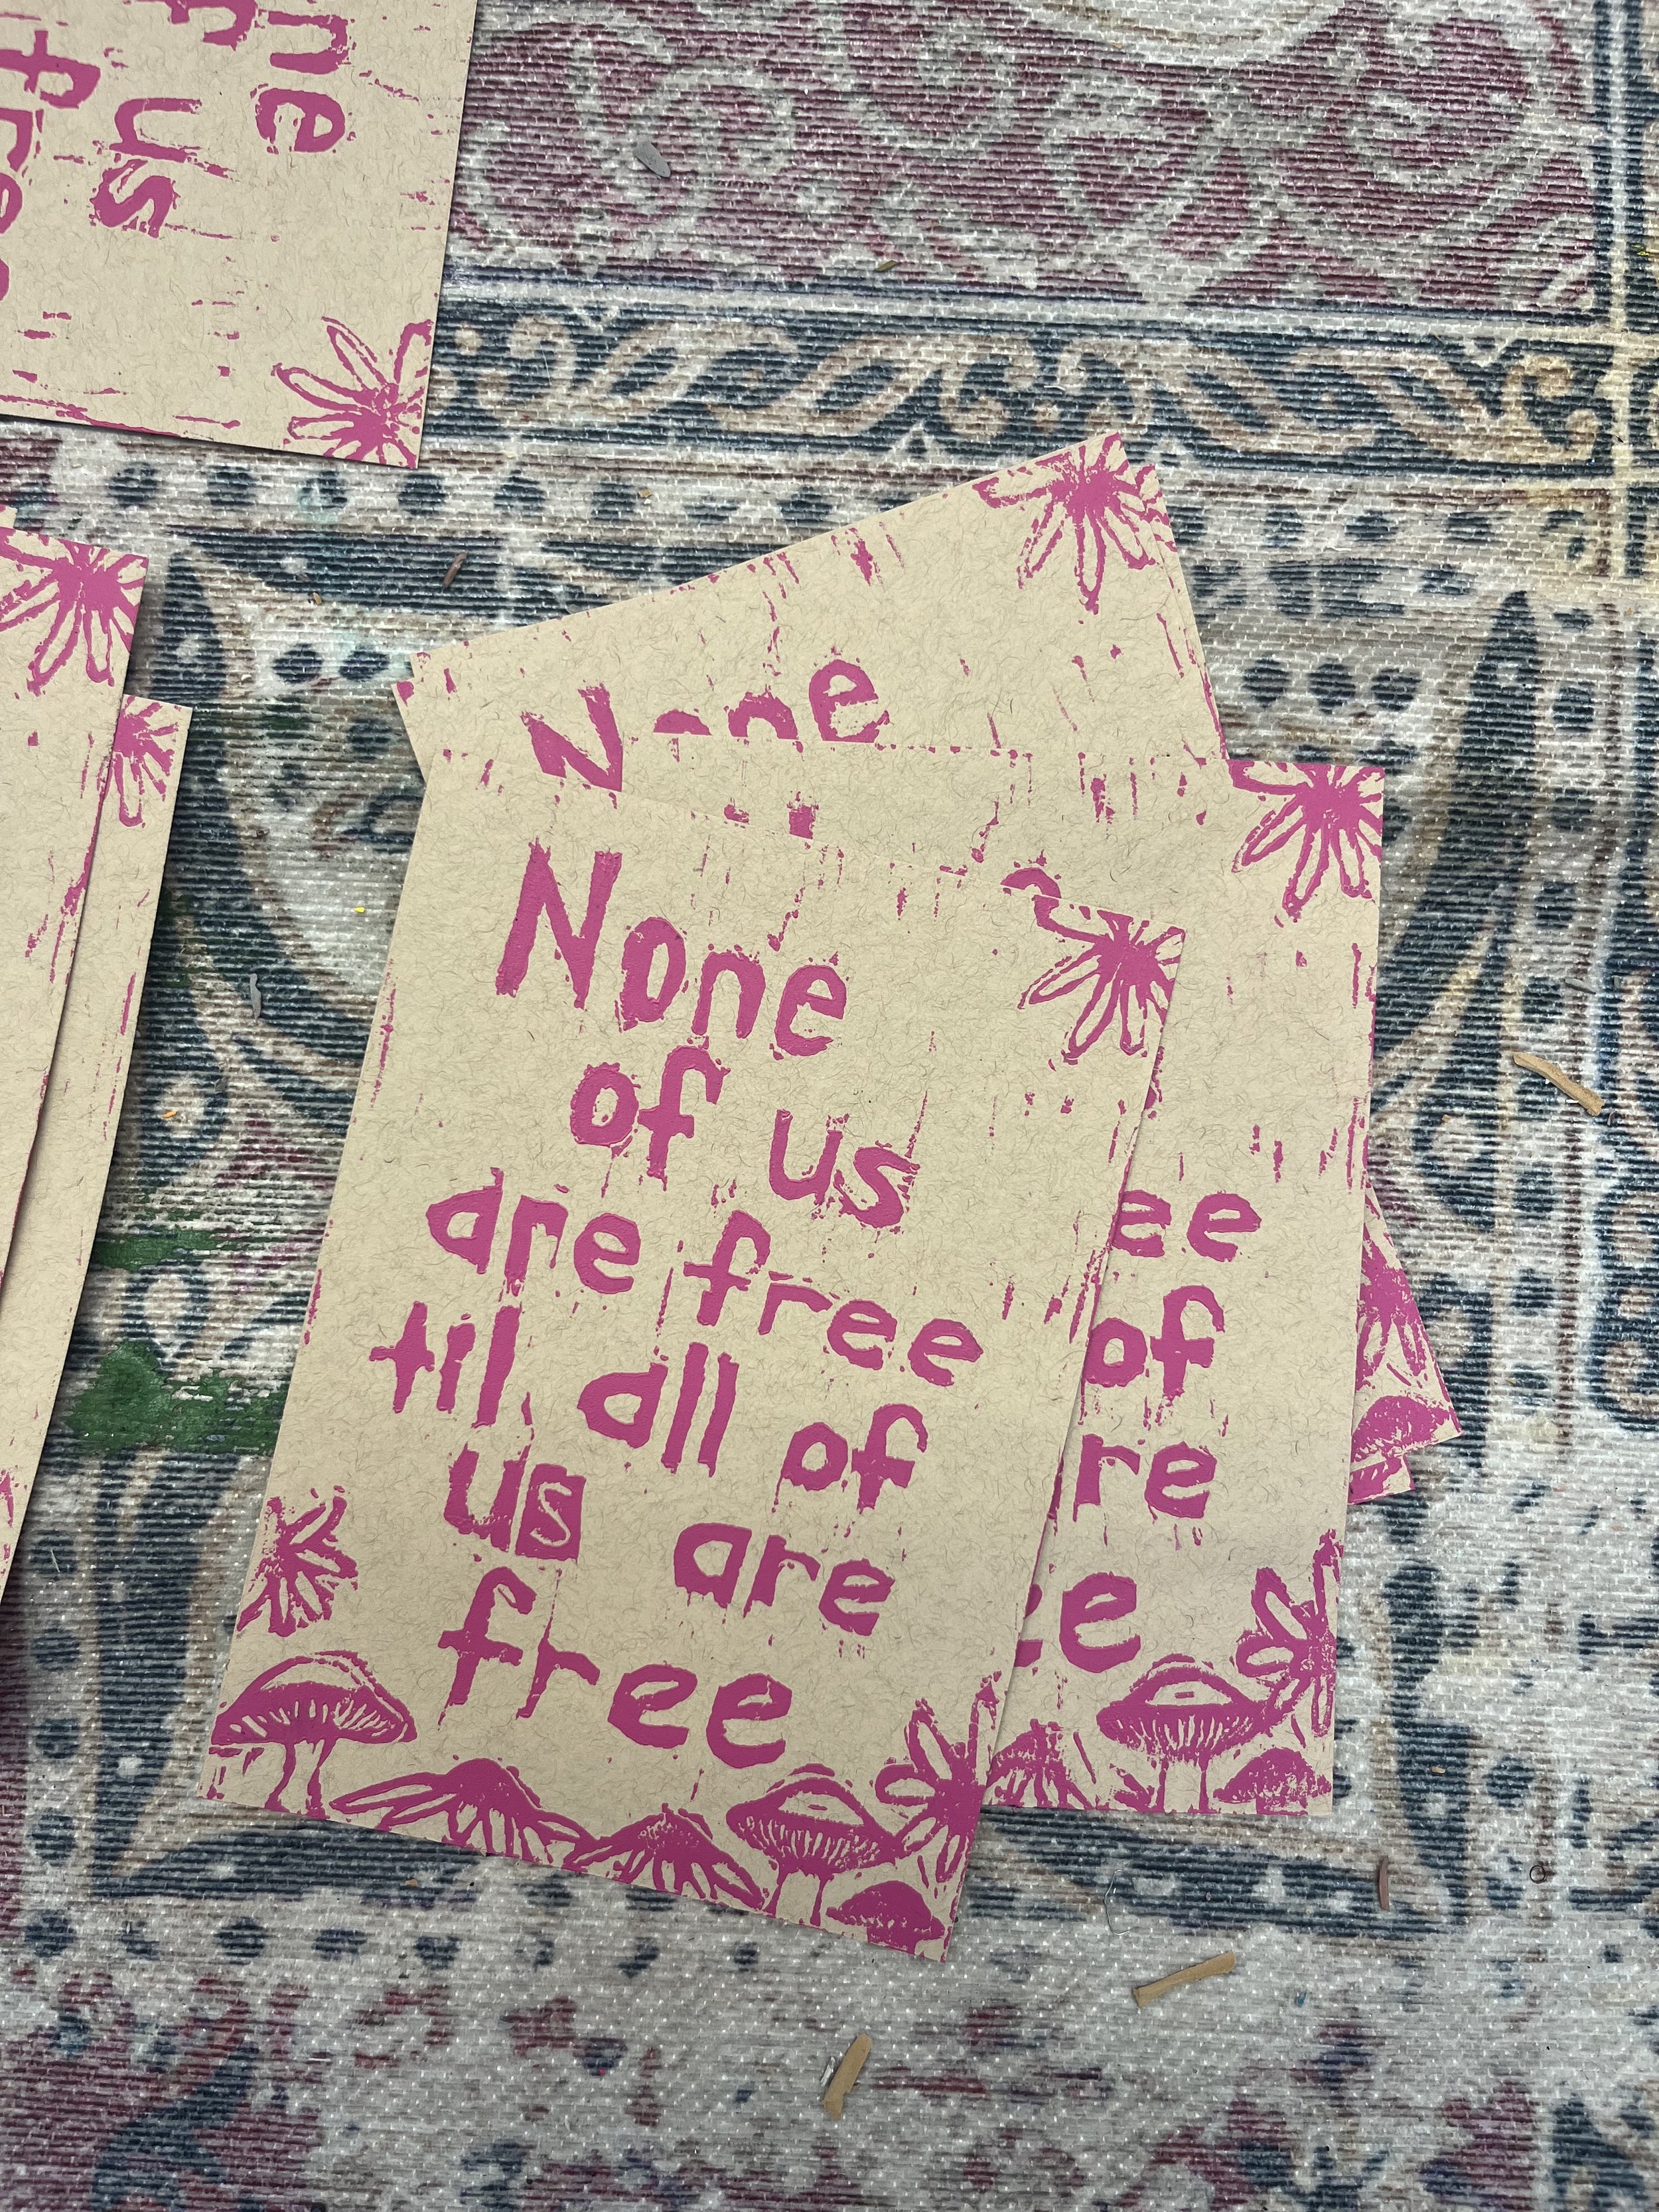 ne
us
free
None
None
of us
are free
til all of
us are
free
ee
of
re
ee